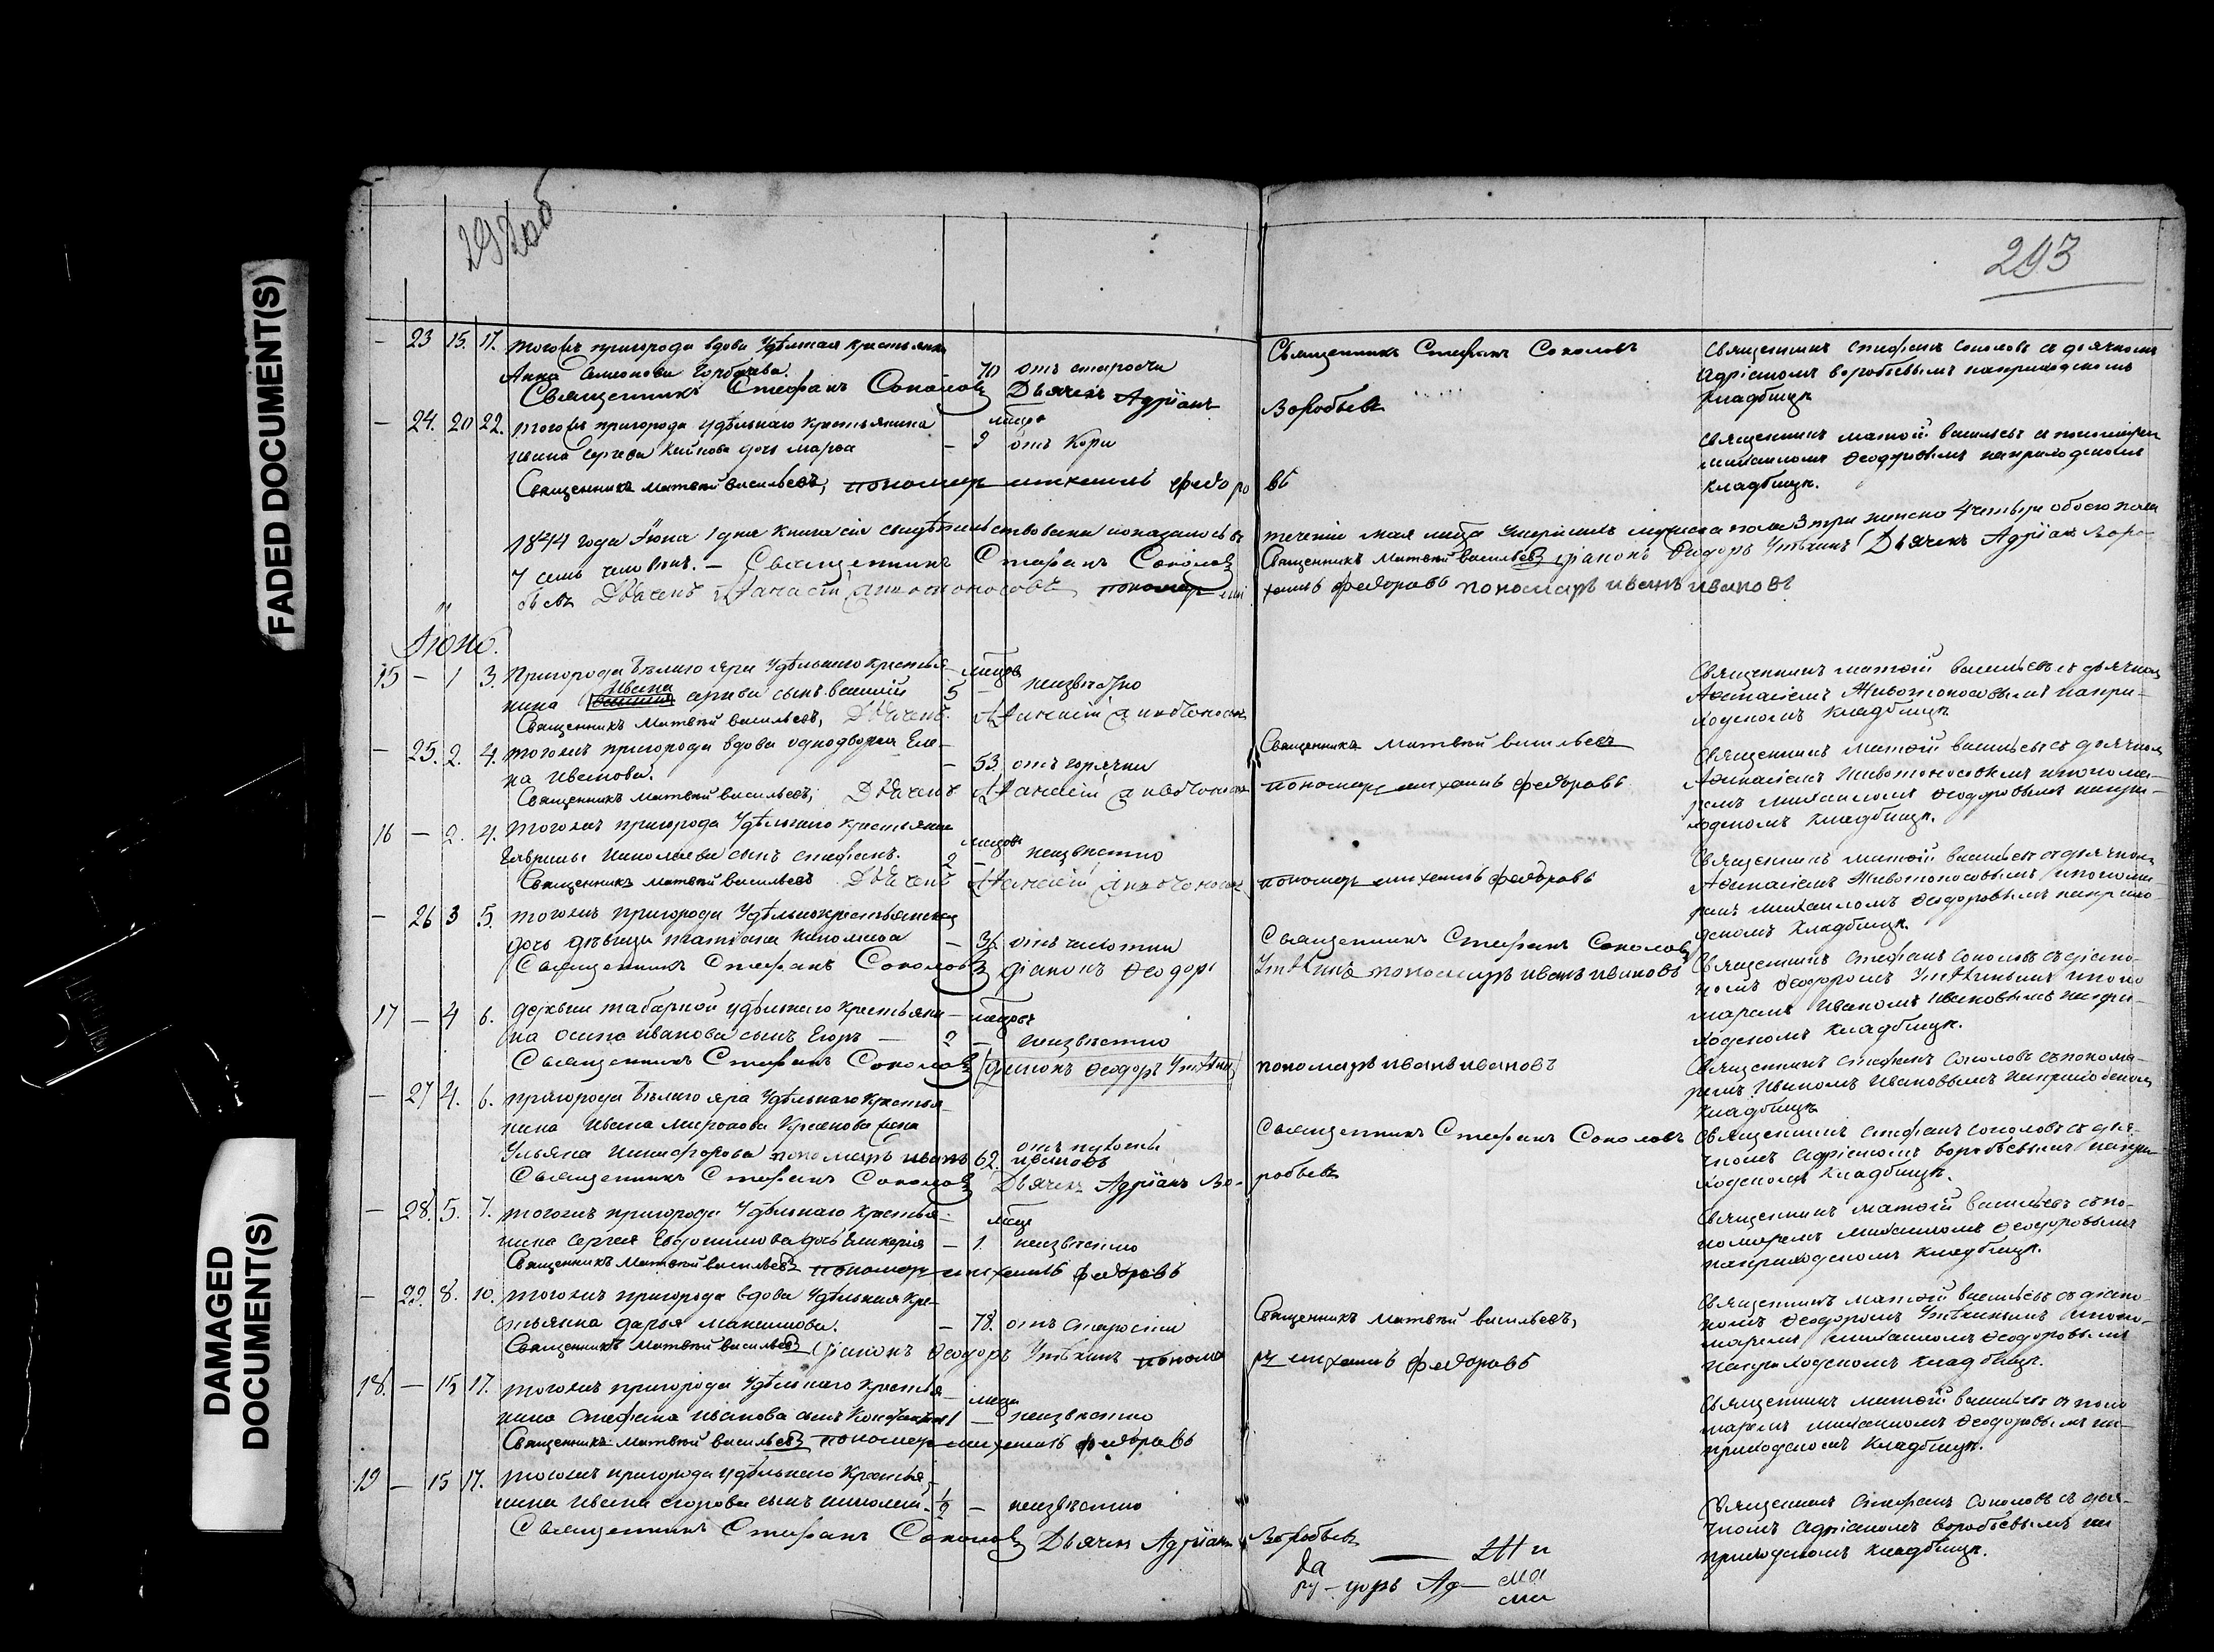 FADED DOCUMENT(S)
DAMAGED DOCUMENT(S)
292об
293
— 23 15. 17. тогожъ пригорода вдова Удѣльная крестьянка
Анна Семенова Горбачева. 70 отъ старости
Священникъ Стефанъ Соколовъ Дьячекъ Адріанъ Воробьевъ
Священникъ Стефанъ Соколовъ
Священникъ Стефанъ Соколовъ съ дьячкомъ
Адріаномъ Воробьевымъ наприходскомъ
кладбищѣ
— 24. 20 22. тогожъ пригорода удѣльнаго крестьянина
Ивана Сергеева дочь Марѳа — 9 мѣсяц отъ Кори
Священникъ Матвей Васильевъ, пономарь михаилъ федоровъ
Священникъ Матѳей Васильевъ съ пономаремъ
михаиломъ Ѳеодоровымъ наприходскомъ
кладбищѣ.
1844 года Іюня 1 дня книга сія свидѣтельствована показалось въ течении мая мѣсяца умершихъ мужеска пола 3 три женска 4 четыре обоего пола
7 семь человѣкъ. — Священникъ Стефанъ Соколовъ Священникъ Матвей Васильевъ діаконъ Ѳедоръ Утѣхинъ Дьячекъ Адріанъ Воро-
бьевъ Дьячекъ Афанасій Живоносовъ пономарь михаилъ федоровъ пономарь иванъ ивановъ
Іюнь.
15 — 1 3. Пригорода Бѣлаго яра Удѣльнаго крестья-
нина Ивана сынъ Василій 5 — неизвѣстно
Священникъ Матвей Васильевъ, Дьячекъ Афанасій
Священникъ Матѳей Васильевъ съ дьячкомъ
Аѳанасіемъ Животоносовымъ напри-
ходскомъ кладбищѣ
— 25. 2. 4. тогожъ пригорода вдова однодворка Еле-
на Иванова. — 53. отъ горячки
Священникъ Матвей Васильевъ, Дьячекъ Афанасій
Священникъ Матвей Васильевъ
пономарь михаилъ федоровъ
Священникъ Матѳей Васильевъ съ дьячкомъ
Аѳанасіемъ Животоносовымъ и понома-
ремъ михаиломъ Ѳеодоровымъ напри-
ходскомъ кладбищѣ.
16 — 2. 4. тогожъ пригорода Удѣльнаго крестьянина
Гаврилы Николаева сынъ Стефанъ. 2 — неизвѣстно
Священникъ Матвей Васильевъ Дьячекъ Афанасій
пономарь михаилъ федоровъ
Священникъ Матѳей Васильевъ съ дьячкомъ
Аѳанасіемъ Животоносовымъ и понома-
ремъ михаиломъ Ѳеодоровымъ наприхо-
дскомъ кладбищѣ.
— 26 3 5. тогожъ пригорода Удѣльнокрестьянская
дочь дѣвица Татіана Николаева — 36. отъ чахотки
Священникъ Стефанъ Соколовъ діаконъ Ѳеодоръ
Священникъ Стефанъ Соколовъ
Утѣхинъ пономарь иванъ ивановъ
Священникъ Стефанъ Соколовъ съ діако-
номъ Ѳеодоромъ Утѣхинымъ и поно-
маремъ Иваномъ Ивановымъ напри-
ходскомъ кладбищѣ.
17 — 4 6. деревни Табарной удѣльнаго крестьяни-
на Осипа Иванова сынъ Егоръ — 2 — неизвѣстно
Священникъ Стефанъ Соколовъ діаконъ Ѳеодоръ Утѣхинъ
пономарь иванъ ивановъ
Священникъ Стефанъ Соколовъ съ понома-
ремъ Иваномъ Ивановымъ наприходскомъ
кладбищѣ
— 27 4. 6. пригорода Бѣлаго яра Удѣльнаго крестья-
нина Ивана Миронова жена
Ульяна Никифорова пономарь иванъ 62. ивановъ
Священникъ Стефанъ Соколовъ Дьячекъ Адріанъ Во-
робьевъ
Священникъ Стефанъ Соколовъ
Священникъ Стефанъ Соколовъ съ дья-
чкомъ Адріаномъ Воробьевымъ напри-
ходскомъ кладбищѣ.
— 28. 5. 7. тогожъ пригорода Удѣльнаго крестья-
нина Сергея Евдокимова дочь Гликерія — 1. неизвѣстно
Священникъ Матвей Васильевъ пономарь михаилъ федоровъ
Священникъ Матѳей Васильевъ съ по-
номаремъ михаиломъ Ѳеодоровымъ
наприходскомъ кладбищѣ.
— 29. 8. 10. тогожъ пригорода вдова Удѣльная кре-
стьянка Дарья Максимова. — 78. отъ старости
Священникъ Матвей Васильевъ діаконъ Ѳеодоръ Утѣхинъ понома
Священникъ Матвей Васильевъ,
рь михаилъ федоровъ
Священникъ Матѳей Васильевъ съ діако-
номъ Ѳеодоромъ Утѣхинымъ и поно-
маремъ михаиломъ Ѳеодоровымъ
наприходскомъ кладбищѣ.
18. — 15 17. тогожъ пригорода Удѣльнаго крестья-
нина Стефана Иванова сынъ 1 — неизвѣстно
Священникъ Матвей Васильевъ пономарь михаилъ федоровъ
Священникъ Матѳей Васильевъ съ поно-
маремъ михаиломъ Ѳеодоровымъ на-
приходскомъ кладбищѣ.
19 — 15 17. тогожъ пригорода удѣльнаго крестья-
нина Ивана Егорова сынъ Николай. ½ — неизвѣстно
Священникъ Стефанъ Соколовъ Дьячекъ Адріанъ Воробьевъ
Священникъ Стефанъ Соколовъ съ дья-
чкомъ Адріаномъ Воробьевымъ на
приходскомъ кладбищѣ.